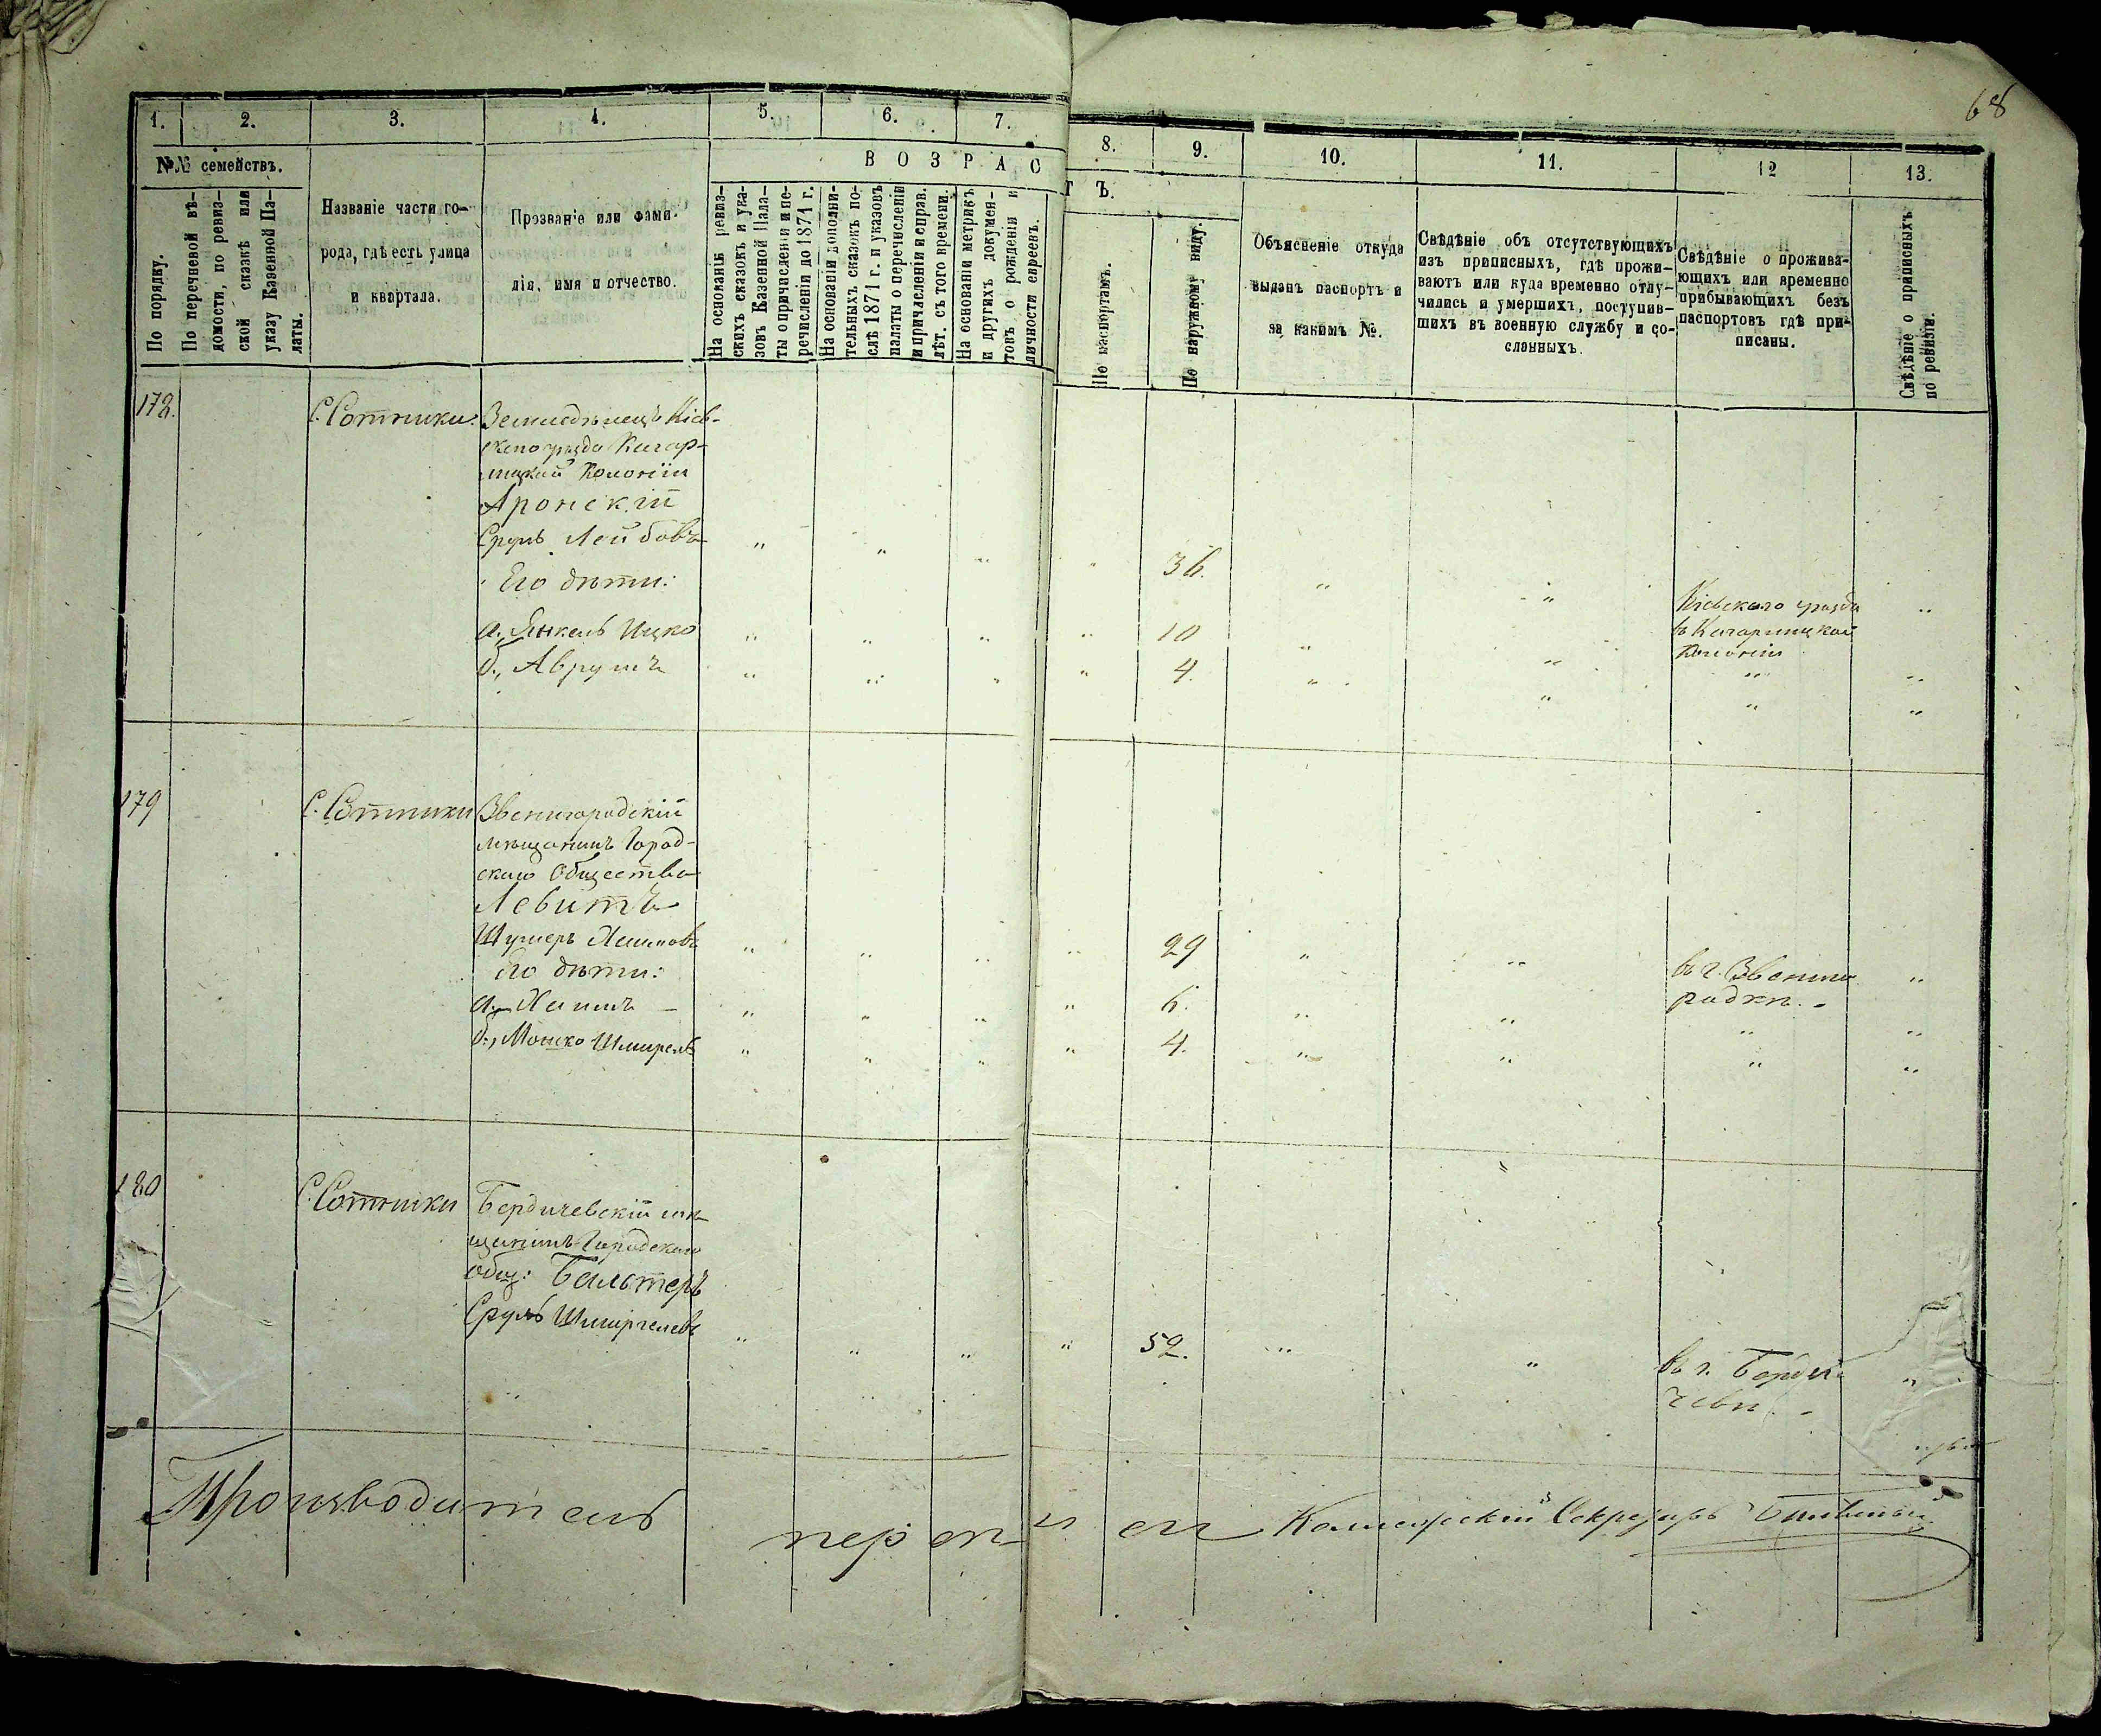 68
1. 2. 3. 4. 5. 6. 7. 8. 9. 10. 11. 12 13.
№№ семействъ.
ВОЗРАСТЪ.
По порядку.
По перечневой вѣ-
домости, по ревиз-
ской сказкѣ или
указу Казенной Па-
латы.
Названіе части го-
рода, гдѣ есть улица
и квартала.
Прозваніе или фами-
лія, имя и отчество.
На основаніи ревиз-
скихъ сказокъ и ука-
зовъ Казенной Пала-
ты о причисленіи и пе-
речисленіи до 1871 г.
На основаніи дополни-
тельныхъ сказокъ по-
слѣ 1871 г. и указовъ
палаты о перечисленіи
и причисленіи и справ.
лѣт. съ того времени.
На основаніи метрикъ
и другихъ докумен-
товъ о рожденіи и
личности евреевъ.
По паспортамъ.
По наружному виду.
Объясненіе откуда
выданъ паспортъ и
за какимъ №.
Свѣдѣніе объ отсутствующихъ
изъ приписныхъ, гдѣ прожи-
ваютъ или куда временно отлу-
чились и умершихъ, поступив-
шихъ въ военную службу и со-
сланныхъ.
Свѣдѣніе о прожива-
ющихъ или временно
прибывающихъ безъ
паспортовъ гдѣ при-
писаны.
Свѣдѣніе о приписныхъ
по ревизіи.
178. С. Сотники. Земледѣлецъ Кіев-
скаго уѣзда Кагар-
лицкой Колоніи
Аронскій
Сруль Лейбовъ " " " " 36. " " Кіевскаго уѣзда "
Его дѣти: въ Кагарлицкой
Колоніи
а., Янкель Ицко " " " " 10 " " " "
б., Аврумъ " " " " 4. " " " "
179 С. Сотники Звенигородскій
мѣщанинъ Город-
скаго Общества
Левитъ
Шулиеръ Хаимовъ " " " " 29 " " въ г. Звениго "
Его дѣти: родкѣ. -
а., Хаимъ - " " " " 6. " " " "
б., Мошко Шмирель " " " " 4. " " " "
180 С. Сотники Бердичевскій мѣ-
щанинъ Городскаго
Общ: Бальтеръ
Сруль Шмиргелевъ " " " " 52. " " въ г. Берди- "
чевѣ. -
Производитель переписи Коллежскій Секретарь